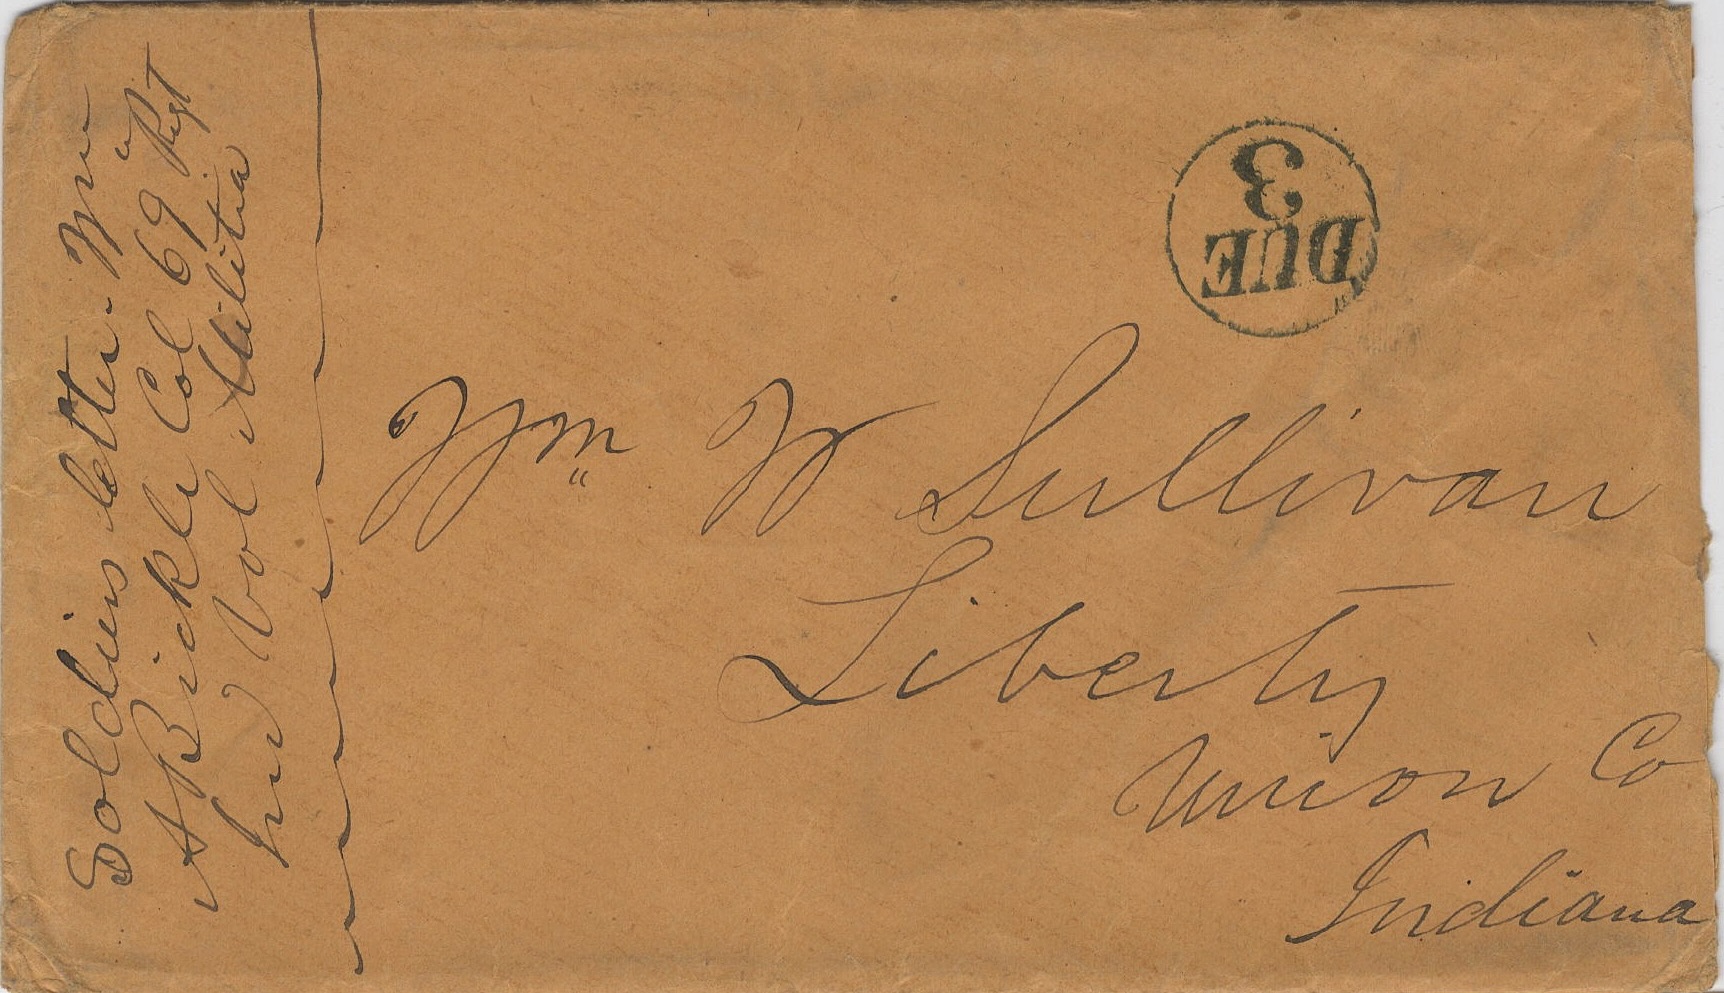 Soldiers letter. Wm
A Bickle Col 69 Regt
Ind Vol Militia
DUE
3
Wm W Sullivan
Liberty
Union Co
Indiana